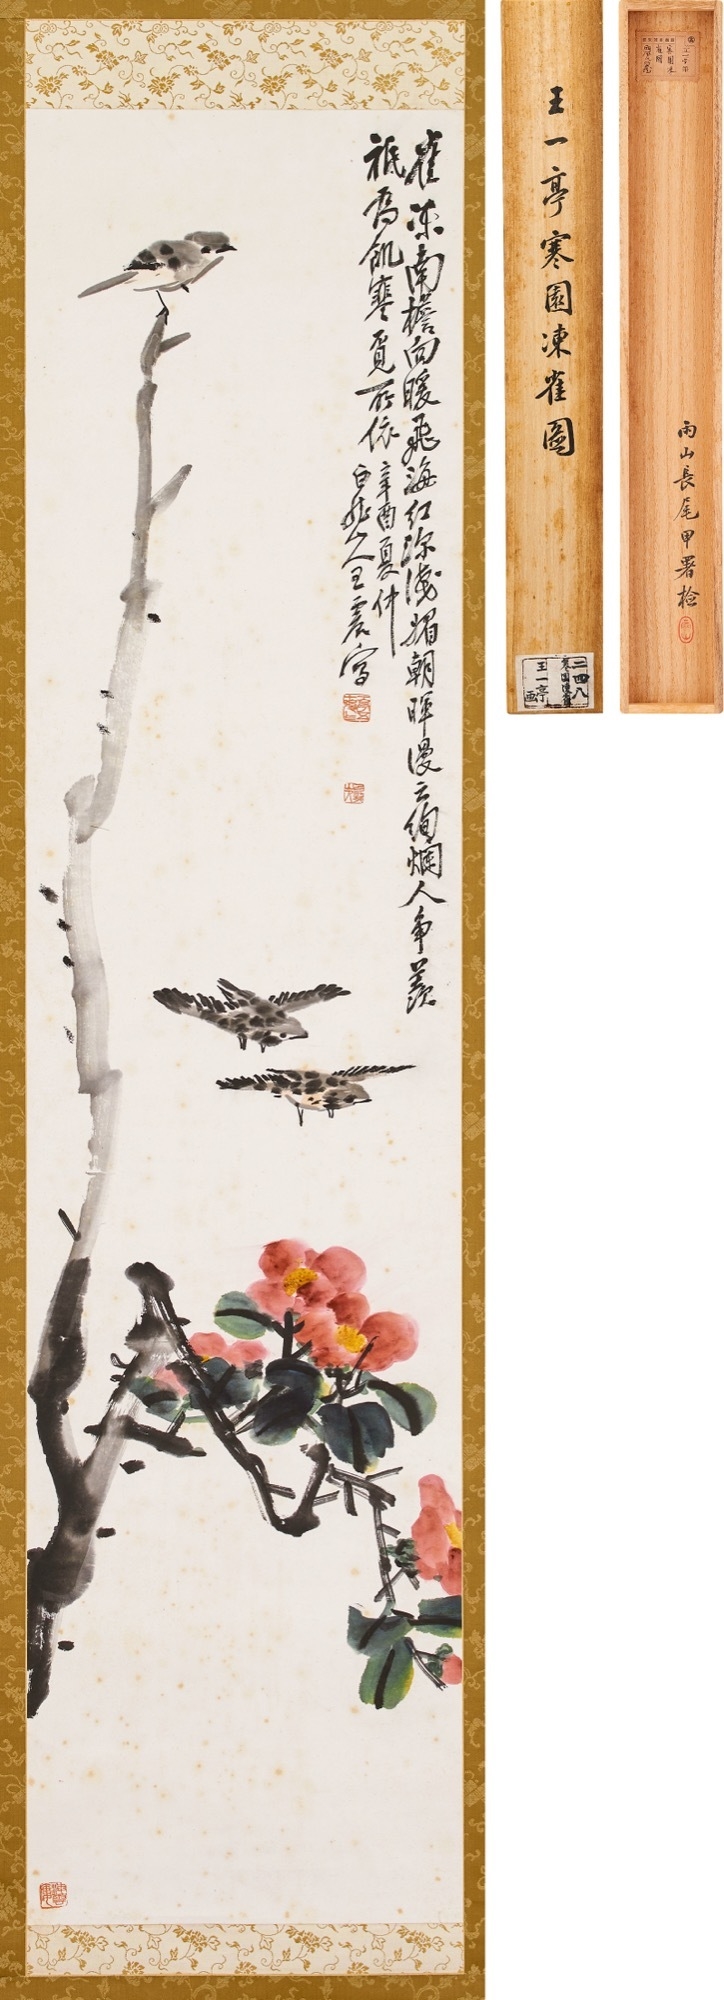 雀凍南檐向暖飛海紅深淺媚朝暉漫云絢爛人争羨
祇為飢寒覓所依
辛酉夏仲
白龍山人王震寫
王一亭寒園凍雀圖
二四八
寒園凍雀
王一亭
画
雨山長尾甲署檢